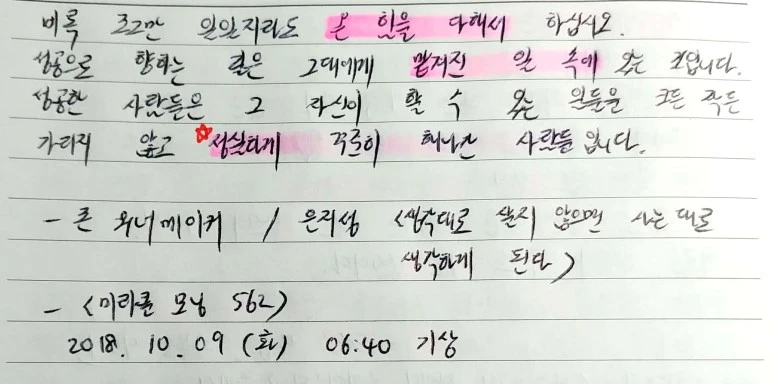 비록 조그만 일일지라도 온 힘을 다해서 하십시오.
성공으로 향하는 길은 그대에게 맡겨진 일 속에 있는 것입니다.
성공한 사람들은 그 자신이 할 수 있는 일들을 크든 작든
가리지 않고 성실하게 꾸준히 해나간 사람들입니다.
- 존 워너메이커 / 은지성 <생각대로 살지 않으면 사는 대로
생각하게 된다>
- <미라클 모닝 562>
2018. 10. 09 (화) 06:40 기상